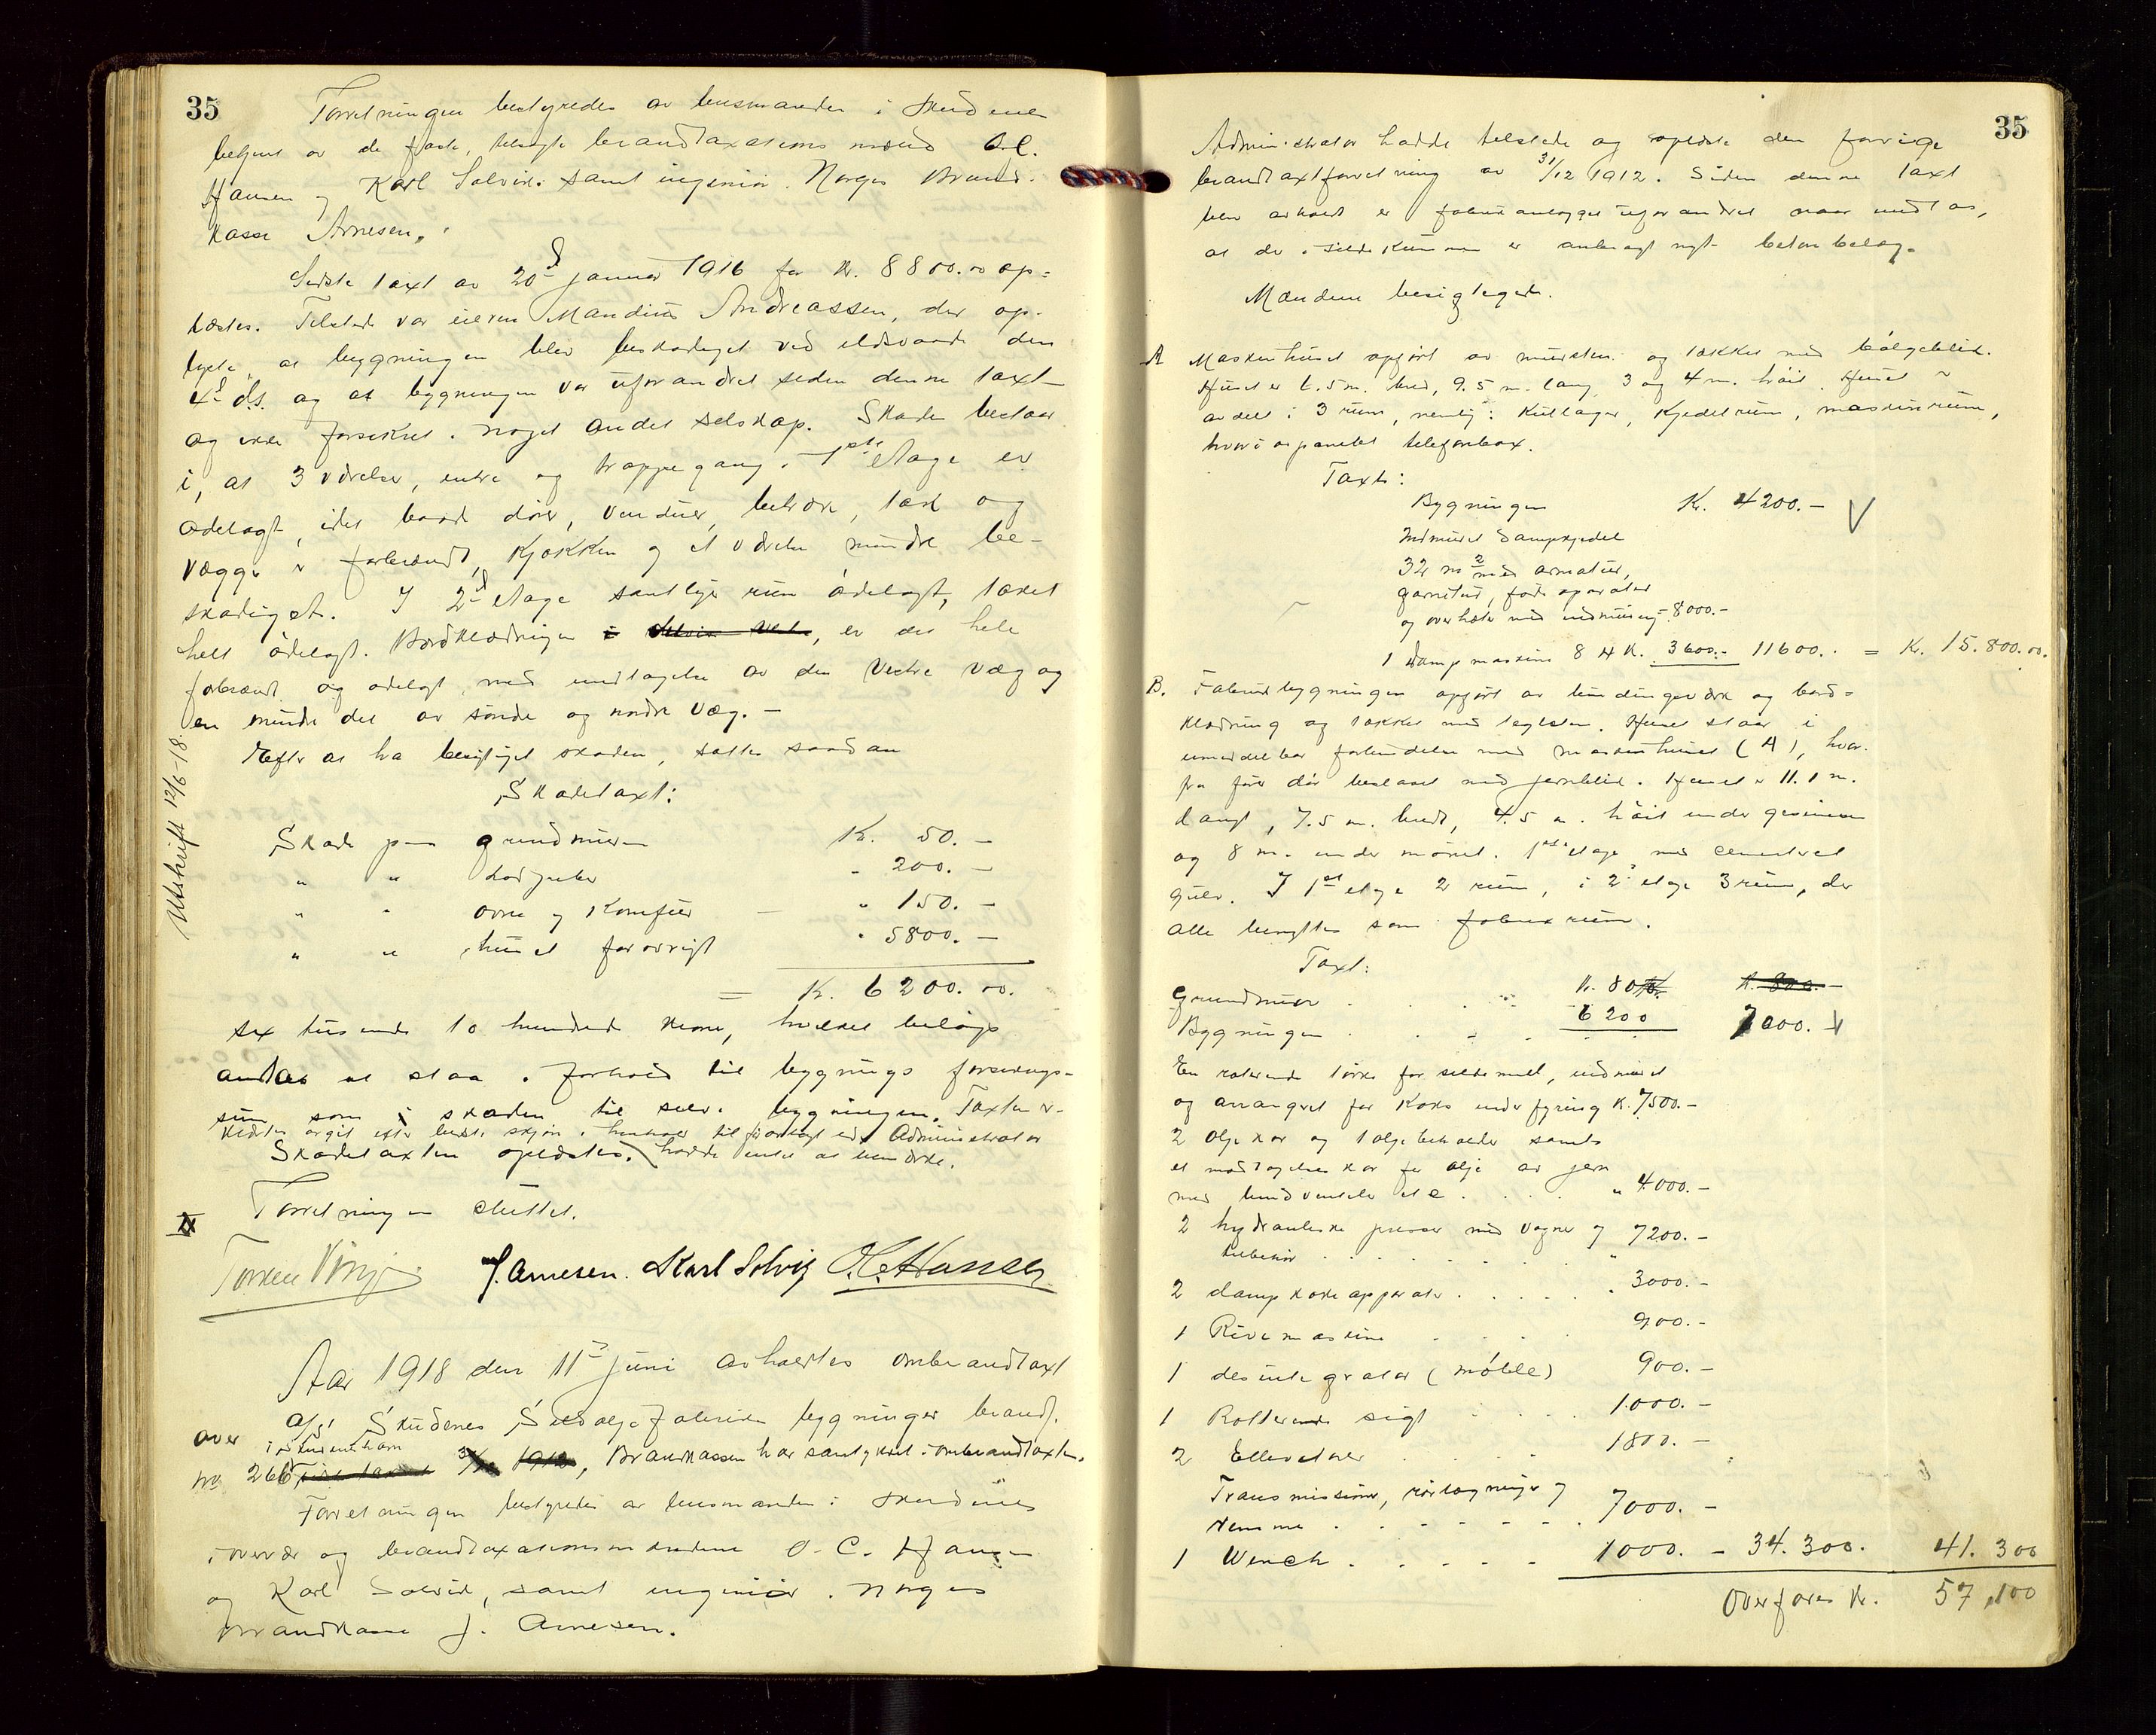 35
Forretningen bestyredes av lensmanden i Skudenes
betjent av de faste, edsvorne brandtaxations mænd O.C.
Hansen og Karl Solvik samt ingeniør i Norges Brand-
kasse Arnesen.
Sidste taxt av 20d januar 1916 for kr. 8800.00 op-
læstes. Tilstede var eieren Mandius Andreassen, der op-
lyste, at bygningen blev beskadiget ved ildsvaade den
4d ds. og at bygningen var uforandret siden denne taxt
og ikke forsikret i noget andet selskap. Skaden bestaar
i, at 3 værelser, entre og trappegang i 1ste etage er
ødelagt, idet baade dører, vinduer, betræk, tak og
vægge er forbrændt, kjøkken og et værelse mindre be-
skadiget. I 2d etage samtlige rum ødelagt, taket
helt ødelagt. Bordklædningen er det hele
forbrændt og ødelagt, med undtagelse av den Vestre væg og
en mindre del av søndre og nordre væg. -
Efter at ha besigtiget skaden, sattes saadan
Skadetaxt:
Skade paa grundmuren Kr. 50. -
" " Lodpiper - 200. -
" " ovne og komfur - " 150. -
" " huset forøvrigt " 5800. -
= Kr. 6200.00.
sex tusende to hundrede kroner, hvilket beløp
antas at staa i forhold til bygnings forsikrings-
sum som skaden til selve bygningen. Taxten er
avgit efter bedste skjøn i henhold til avlagt ed. Administrator
Skadetaxten oplæstes. hadde intet at bemerke.
Forretningen sluttet.
J. Arnesen. Karl Solvig O.C. Hansen
Utskrift 12/6-18.
Aar 1918 den 11te juni avholdtes ombrandtaxt
over A/S Skudenes Sildoljefabriks bygninger brandt.
i Skudeneshavn
no 266 , Brandkassen har samtykket i ombrandtaxten.
Forretningen bestyredes av lensmanden i Skudenes
i overvær og brandtaxationsmændene O.C. Hansen
og Karl Solvik, samt ingeniør i Norges
Brandkasse J. Arnesen.
35
Administrator hadde tilstede og oplæste den forrige
brandtaxtforretning av 31/12 1912. Siden denne taxt
blev avholdt er fabrikanlægget uforandret naar undtas,
at der i sildekummen er anbragt nyt betonbelæg.
Mændene besigtiget.
A Maskinhuset opført av mursten og tækket med bølgeblik.
Huset er 6.5 m. bred, 9.5 m. lang, 3 og 4 m. høit. Huset er
avdelt i 3 rum, nemlig: Kullager, Kjedelrum, maskinrum,
hvori avpanelet telefonbox.
Taxt:
Bygningen Kr. 4200.- V
Indmuret Dampkjedel
32 m2 med armatur,
garnitur, føde aparater
og overheter med indmuring - 8000.-
1 Dampmaskine 8 H.K. 3600.- 11600.- = Kr. 15.800.00.
B. Fabrikbygningen opført av bindingsverk og bord-
klædning og tækket med teglsten. Huset staar i
umiddelbar forbindelse med maskinhuset (A), hvor-
fra fører dør beslaaet med jernblik. Huset er 11.1 m.
langt, 7.5 m. bredt, 4.5 m. høit under gesimsen
og 8 m. under mønet. 1ste etage med cementert
gulv. I 1ste etage 2 rum, i 2 etage 3 rum, der
alle benyttes som fabrikrum.
Taxt:
Grundmur . . . Kr. 800. Kr. 800.-
Bygningen . . . 6200 7000. V
En roterende tørke for sildemel, indmuret
og arrangeret for Koks underfyring K. 7500.-
2 oljekar og 1 oljebeholder samt
et modtagelseskar for olje av jern
med bundventile etc. . . . " 4000.-
2 hydrauliske presser med vogner og 7200.-
tilbehør . . . . . .
2 dampkokeapparater . . . . . 3000.-
1 Rivemaskine . . . 900.-
1 desintegrator (mølle) 900.-
1 Rotterende sigt . . . 1000.-
2 Ellevatorer . . . 1800.-
Transmissioner, rørlægninger og
remme . . . . . . . 7000.-
1 Winch . . . . . 1000.- 34.300. 41.300
Overføres Kr. 57,100